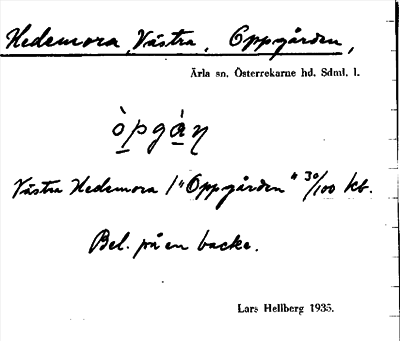 Hedemora, Västra, Oppgården,
Ärla sn. Österrekarne hd. Sdml. l.
òpgàṇ
Västra Hedemora / "Oppgården" 30/100 kb.
Bel. på en backe.
Lars Hellberg 1935.